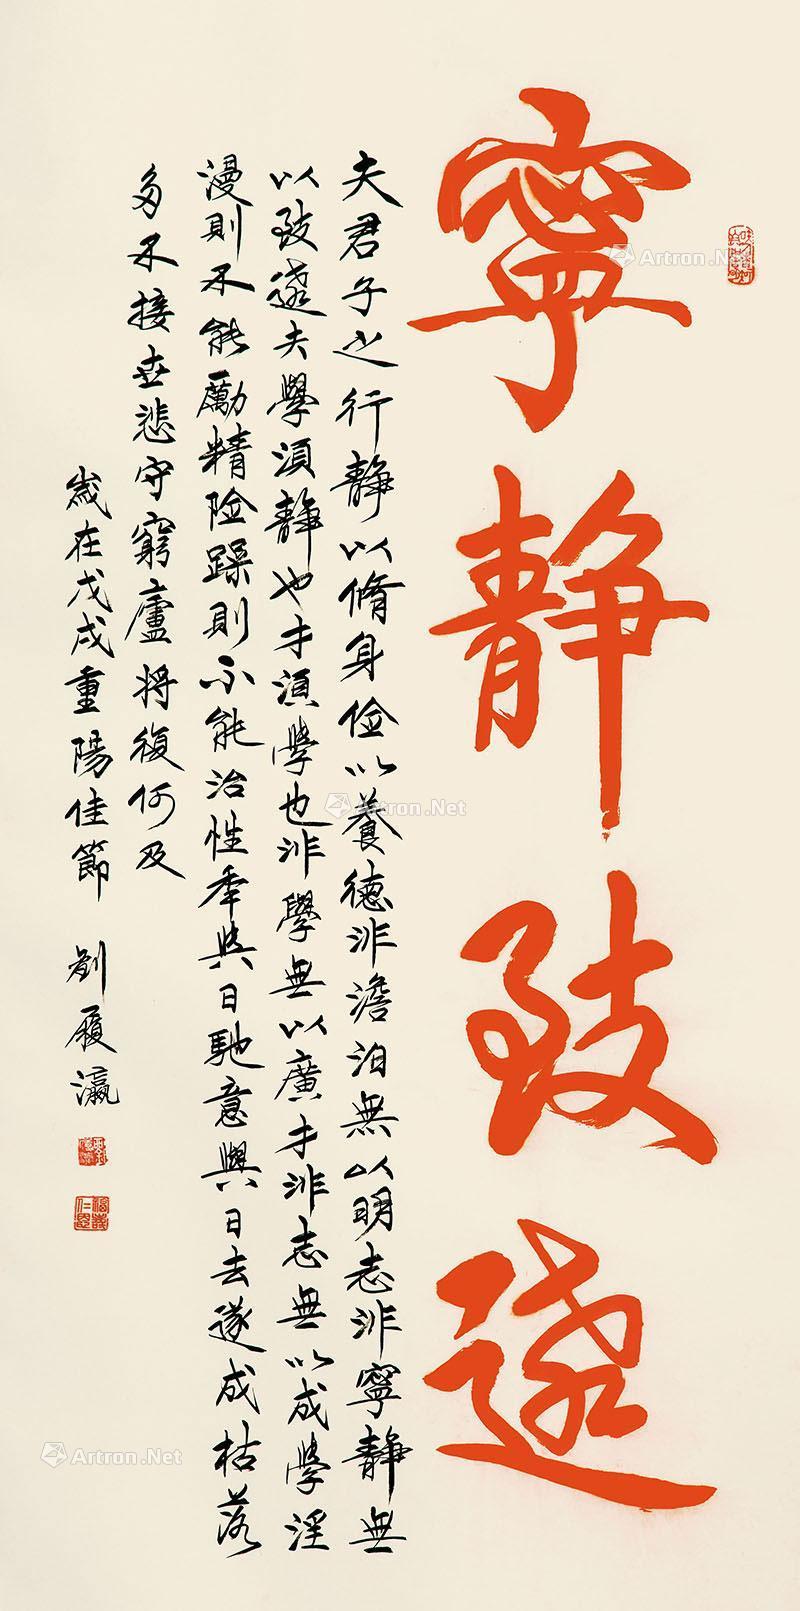 寧靜致遠
夫君子之行靜以脩身儉以養德非澹泊無以明志非寧靜無
以致遠夫學須靜也才須學也非學無以廣才非志無以成學淫
漫則不能勵精險躁則不能治性年與日馳意與日去遂成枯落
多不接世悲守窮廬將復何及
歲在戊戌重陽佳節 劉履瀛
Artron.Net
Artron.Net
Artron.Net